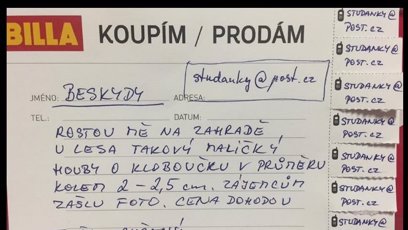 BILLA
KOUPÍM / PRODÁM
studanky@post.cz
JMÉNO: BESKYDY ADRESA:
TEL.: DATUM:
ROSTOU MĚ NA ZAHRADĚ
U LESA TAKOVÝ MALIČKÝ
HOUBY O KLOBOUČKU V PRŮMĚRU
KOLEM 2-2,5 cm. ZÁJEMCŮM
ZAŠLU FOTO. CENA DOHODOU
STUDANKY@
POST.CZ
STUDANKY@
POST.CZ
STUDANKY@
POST.CZ
STUDANKY@
POST.CZ
STUDANKY@
POST.CZ
STUDANKY@
POST.CZ
STUDANKY@